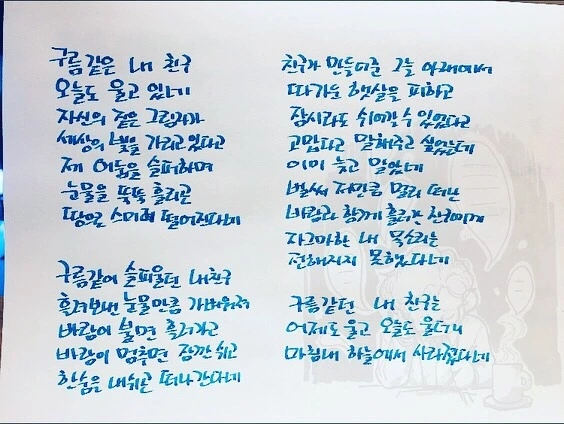 구름같은 내 친구
오늘도 울고 있네
자신의 짙은 그림자가
세상의 빛을 가리고 있다고
제 어둠을 슬퍼하며
눈물을 뚝뚝 흘리곤
땅으로 스미려 떨어진다네
구름같이 슬피울던 내친구
흘려보낸 눈물만큼 가벼워져
바람이 불면 흘러가고
바람이 멈추면 잠깐 쉬고
한숨을 내쉬곤 떠나간다네
친구가 만들어준 그늘 아래에서
따가운 햇살을 피하고
잠시라도 쉬어갈 수 있었다고
고맙다고 말해주고 싶었는데
이미 늦고 말았네
벌써 저만큼 멀리 떠난
바람과 함께 흘러간 친구에게
자그마한 내 목소리는
전해지지 못했다네
구름같던 내 친구는
어제도 울고 오늘도 울더니
마침내 하늘에서 사라졌다네